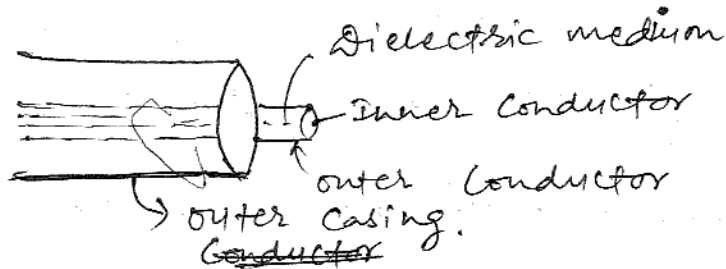 Dielectric medium
Inner Conductor
outer Conductor
outer Casing.
Conductor